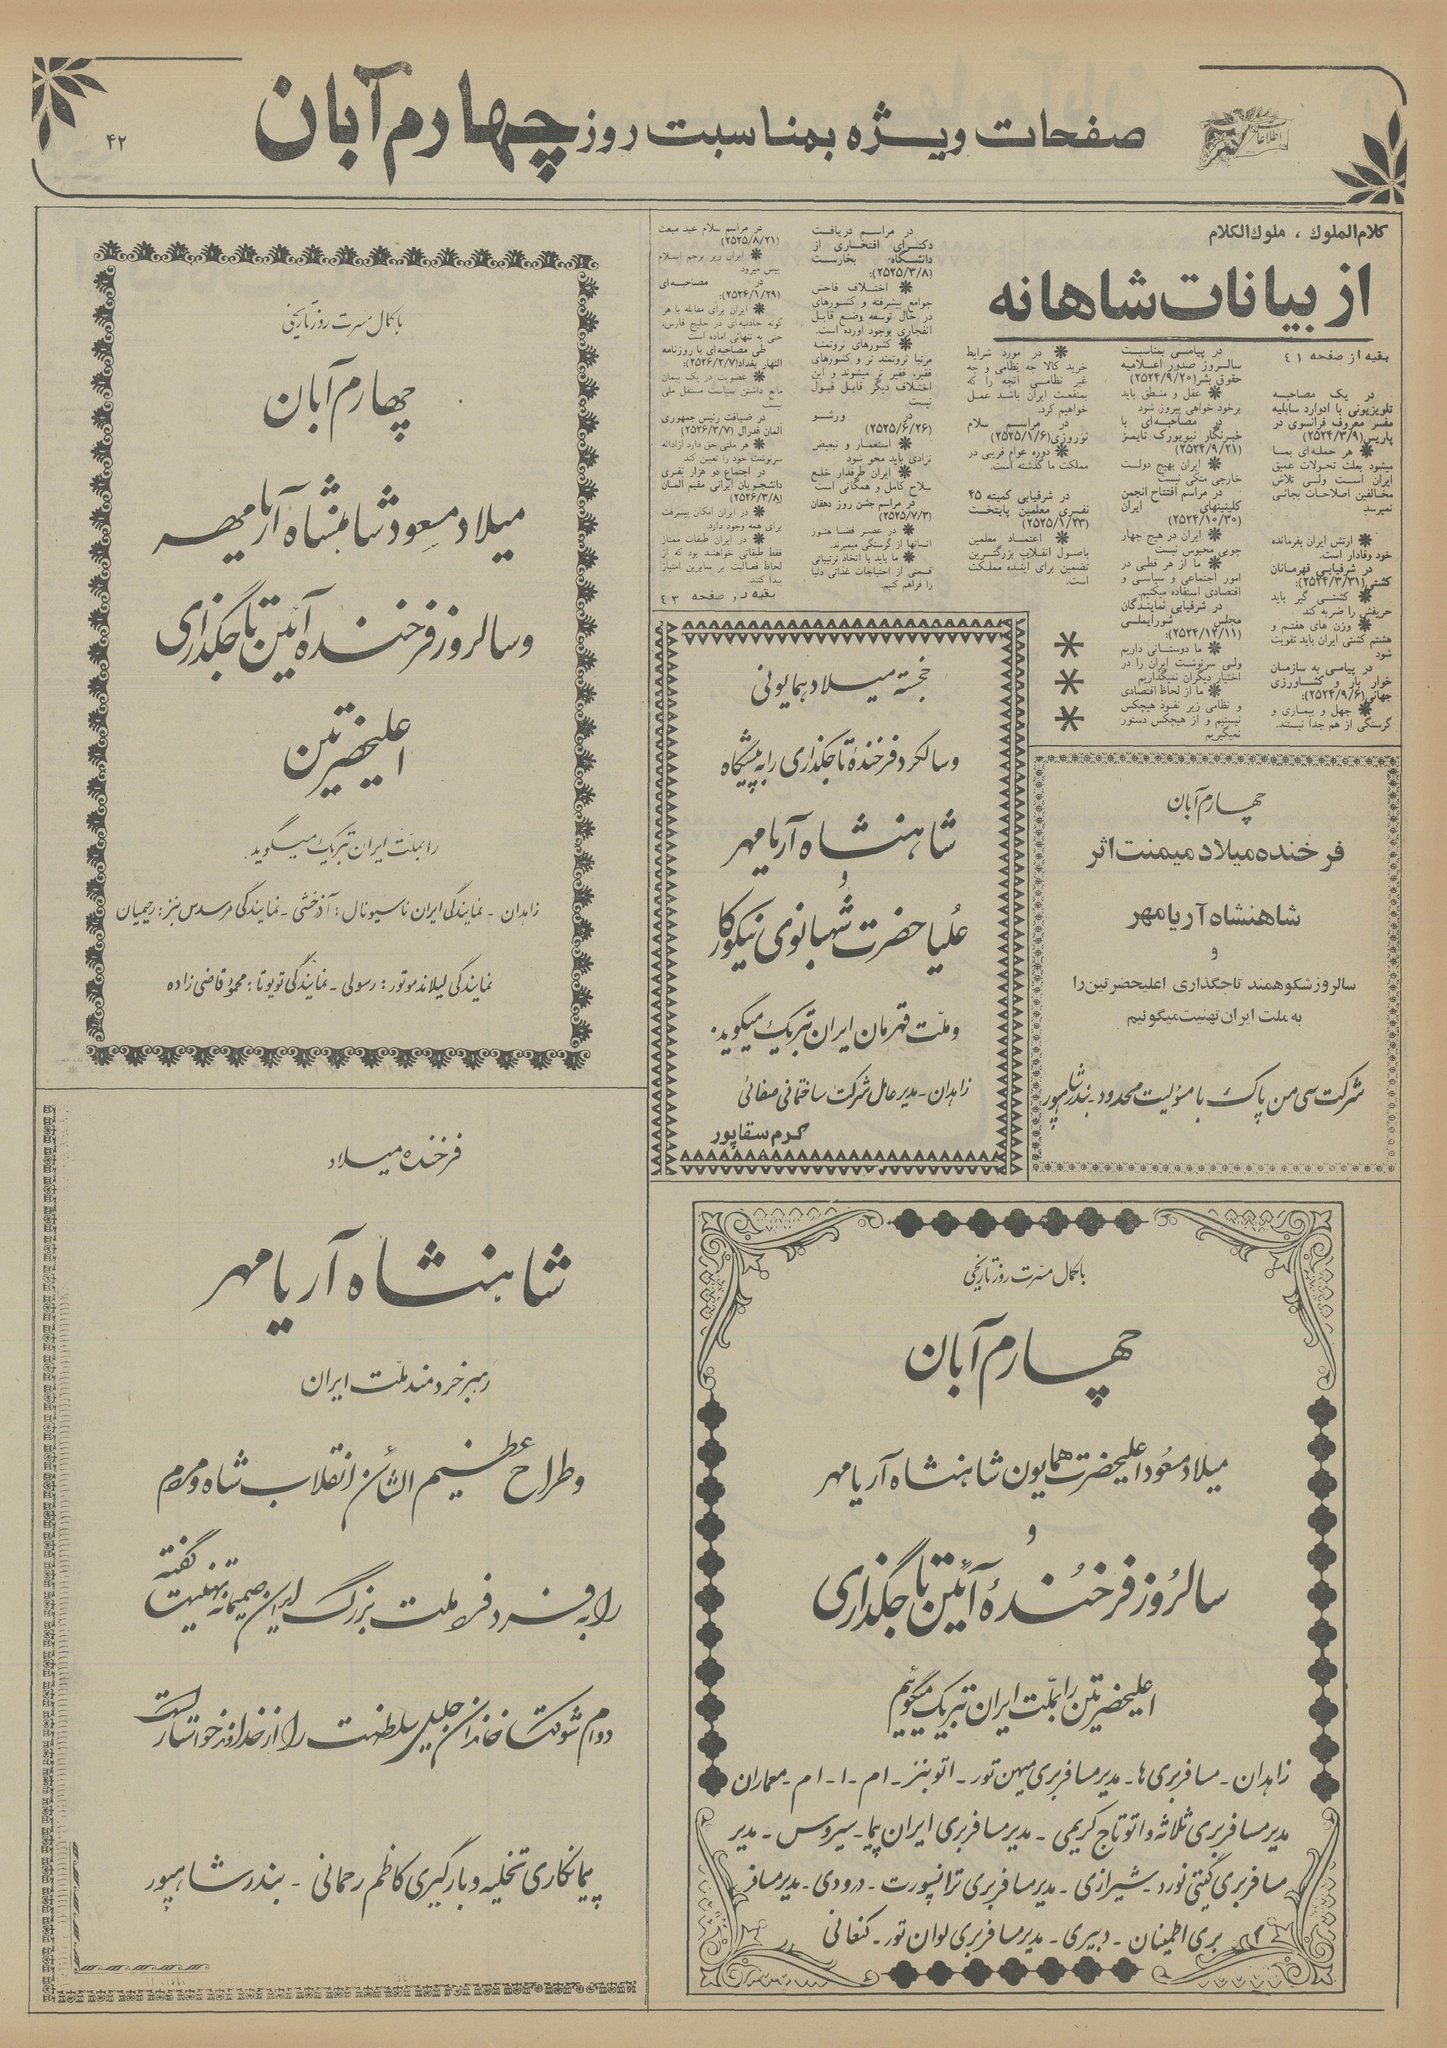 صفحات ویژه بمناسبت روز چهارم آبان
۴۲
اطلاعات
کلام الملوك ، ملوك الكلام
از بیانات شاهانه
بقیه از صفحه ۴۱
در یک مصاحبه
تلویزیونی با ادوارد سابلیه
مفسر معروف فرانسوی در
پاریس(۲۵۲۴/۳/۹)
✷ هر حمله‌ای بما
میشود بعلت تحولات عمیق
ایران است ولی تلاش
مخالفین اصلاحات بجائی
نمیرسد
✷ ارتش ایران بفرمانده
خود وفادار است.
در شرفیابی قهرمانان
کشتی(۲۵۲۴/۳/۳۱):
✷ کشتی گیر باید
حریفش را ضربه کند
✷ وزن های هفتم و
هشتم کشتی ایران باید تقویت
شود
در پیامی به سازمان
خوار بار و کشاورزی
جهانی(۲۵۲۴/۹/۶):
✷ جهل و بیماری و
گرسنگی از هم جدا نیستند.
در پیامی بمناسبت
سالروز صدور اعلامیه
حقوق بشر(۲۵۲۴/۹/۲۰)
✷ عقل و منطق باید
برخود خواهی پیروز شود
در مصاحبه‌ای با
خبرنگار نیویورک تایمز
(۲۵۲۴/۹/۲۱)
✷ ایران بهیچ دولت
خارجی متکی نیست
در مراسم افتتاح انجمن
کلینیتهای ایران
(۲۵۲۴/۱۰/۳۰)
✷ ایران در هیچ چهار
چوبی محبوس نیست
✷ ما از هر قطبی در
امور اجتماعی و سیاسی و
اقتصادی استفاده میکنیم.
در شرفیابی نمایندگان
مجلس شورایملی
(۲۵۲۴/۱۲/۱۱):
✷ ما دوستانی داریم
ولی سرنوشت ایران را در
اختیار دیگران نمیگذاریم
✷ ما از لحاظ اقتصادی
و نظامی زیر نفوذ هیچکس
نیستیم و از هیچکس دستور
نمیگیریم
✷ در مورد شرایط
خرید کالا چه نظامی و چه
غیر نظامی آنچه را که
بمنفعت ایران باشد عمل
خواهیم کرد.
در مراسم سلام
نوروزی(۲۵۲۵/۱/۶)
✷ دوره عوام فریبی در
مملکت ما گذشته است.
در شرفیابی کمیته ۴۵
نفری معلمین پایتخت
(۲۵۲۵/۱/۲۳)
✷ اعتماد معلمین
باصول انقلاب بزرگترین
تضمین برای آینده مملکت
است.
در مراسم دریافت
دکترای افتخاری از
دانشگاه بخارست
(۲۵۲۵/۳/۸):
✷ اختلاف فاحش
جوامع پیشرفته و کشورهای
در حال توسعه وضع قابل
انفجاری بوجود آورده است.
✷ کشورهای ثروتمند
مرتبا ثروتمند تر و کشورهای
فقیر، فقیر تر میشوند و این
اختلاف دیگر قابل قبول
نیست
در ورشو
(۲۵۲۵/۶/۲۶)
✷ استعمار و تبعیض
نژادی باید محو شود
✷ ایران طرفدار خلع
سلاح کامل و همگانی است
در مراسم جشن روز دهقان
(۲۵۲۵/۷/۳)
✷ در عصر فضا هنوز
انسانها از گرسنگی میمیرند.
✷ ما باید با اتخاذ ترتیباتی
قسمتی از احتیاجات غذائی دنیا
را فراهم کنیم.
در مراسم سلام عید مبعث
(۲۵۲۵/۸/۲۱)
✷ ایران زیر پرچم اسلام
پیش میرود
در مصاحبه‌ای
(۲۵۲۶/۱/۲۹):
✷ ایران برای مقابله با هر
گونه حادثه‌ای در خلیج فارس،
حتی به تنهائی آماده است
طی مصاحبه‌ای با روزنامه
النهار بغداد(۲۵۲۶/۲/۷):
✷ عضویت در یک پیمان
مانع داشتن سیاست مستقل ملی
نیست
در ضیافت رئیس جمهوری
آلمان فدرال (۲۵۲۶/۳/۷)
✷ هر ملتی حق دارد آزادانه
سرنوشت خود را تعیین کند
در اجتماع دو هزار نفری
دانشجویان ایرانی مقیم آلمان
(۲۵۲۶/۳/۸)
✷ در ایران امکان پیشرفت
برای همه وجود دارد.
✷ در ایران طبقات ممتاز
فقط طبقاتی خواهند بود که از
لحاظ فعالیت بر سایرین امتیاز
پیدا کنند.
بقیه در صفحه ۴۳
چهارم آبان
فرخنده میلاد میمنت اثر
شاهنشاه آریامهر
و
سالروز شکوهمند تاجگذاری اعلیحضرتین را
به ملت ایران تهنیت میگوئیم
شرکت سی من پاک با مسئولیت محدود - بندر شاهپور
خجسته میلاد همایونی
و سالگرد فرخندهٔ تاجگذاری را به پیشگاه
شاهنشاه آریامهر
و
علیاحضرت شهبانوی نیکوکار
و ملت قهرمان ایران تبریک میگوید.
زاهدان - مدیر عامل شرکت ساختمانی صفائی
کرم سقاپور
با کمال مسرت روز تاریخی
چهارم آبان
میلاد مسعود شاهنشاه آریامهر
و سالروز فرخنده آئین تاجگذاری
اعلیحضرتین
را بملت ایران تبریک میگوید.
زاهدان - نمایندگی ایران ناسیونال: آذرخشی - نمایندگی مرسدس بنز: رحیمیان
نمایندگی لیلاند موتور: رسولی - نمایندگی تویوتا: محمود قاضی زاده
فرخنده میلاد
شاهنشاه آریامهر
رهبر خردمند ملت ایران
و طراح عظیم الشأن انقلاب شاه و مردم
را به فرد فرد ملت بزرگ ایران صمیمانه تهنیت گفته
دوام شوکت خاندان جلیل سلطنت را از خداوند خواستار است
پیمانکاری تخلیه و بارگیری کاظم رحمانی - بندر شاهپور
با کمال مسرت روز تاریخی
چهارم آبان
میلاد مسعود اعلیحضرت همایون شاهنشاه آریامهر
و
سالروز فرخندهٔ آئین تاجگذاری
اعلیحضرتین را بملت ایران تبریک میگوئیم
زاهدان - مسافربری ها - مدیر مسافربری میهن تور - اتوبنز - ام - ا - ام - معماران
مدیر مسافربری ثلاثه و اتوتاج کریمی - مدیر مسافربری ایران پیما - سیروس - مدیر
مسافربری گیتی نورد - شیرازی - مدیر مسافربری ترانسپورت - درودی - مدیر مسافر
بری اطمینان - دبیری - مدیر مسافربری لوان تور - کنعانی